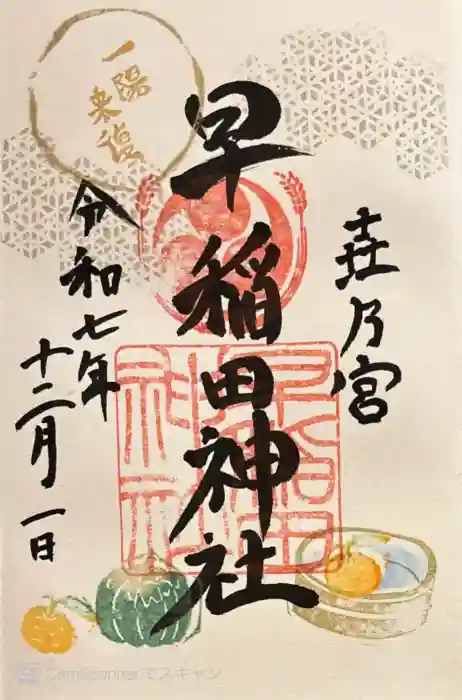 壵乃宮
早稲田神社
早稲田神社
一陽
来復
令和七年
十二月一日
CamScannerでスキャン